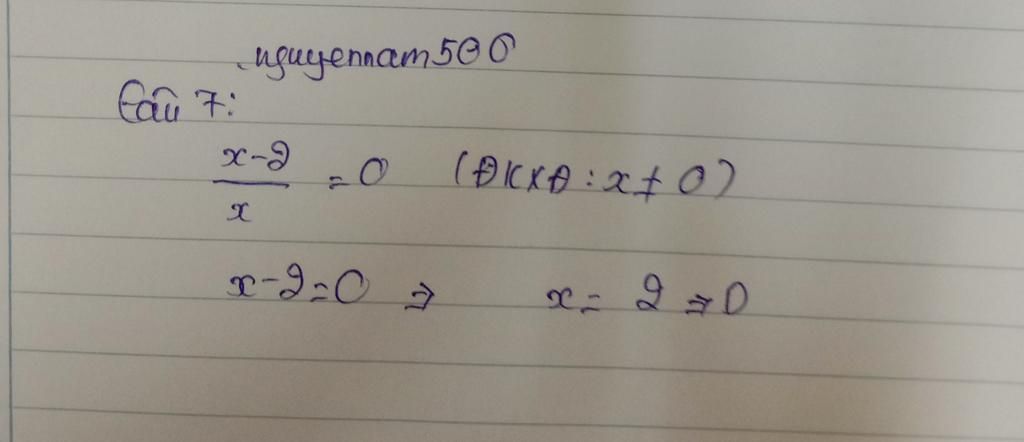 nguyennam506
Câu 7:
x-2/x = 0 (ĐKXĐ: x ≠ 0)
x-2=0 ⇒ x = 2 ⇒ D